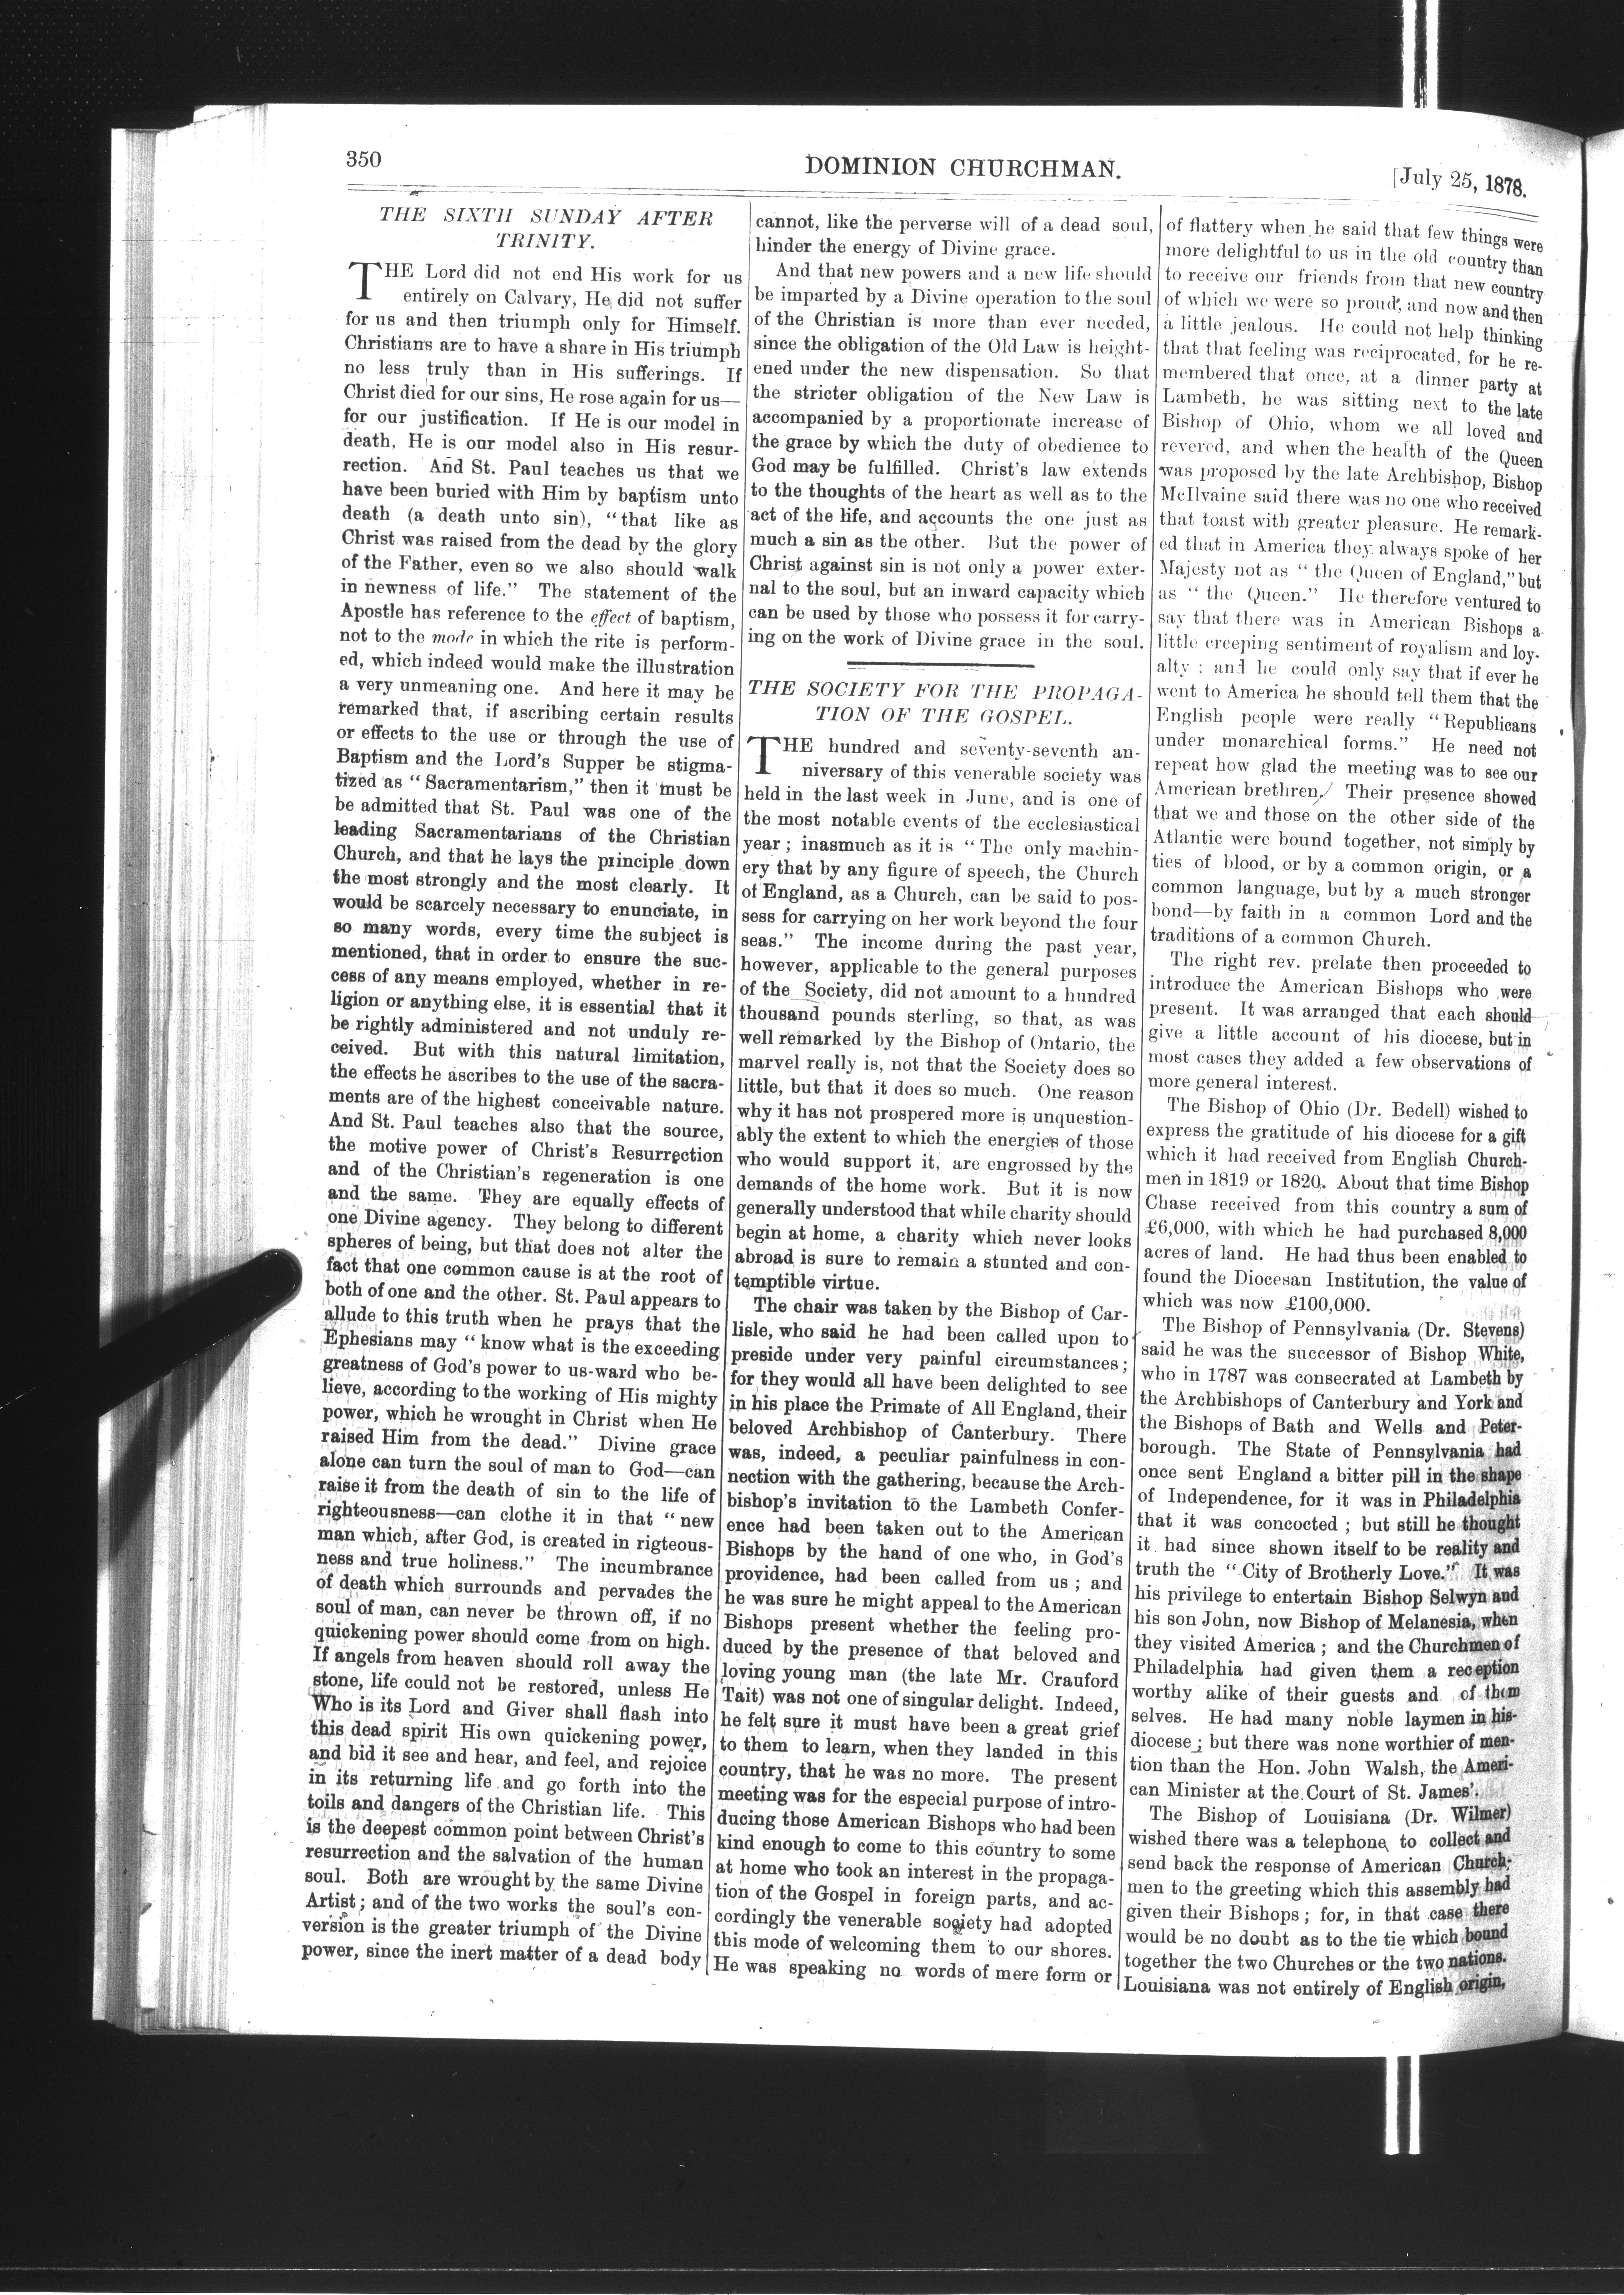 350
DOMINION CHURCHMAN.
[July 25, 1878.
THE SIXTH SUNDAY AFTER
TRINITY.
THE Lord did not end His work for us
entirely on Calvary, He did not suffer
for us and then triumph only for Himself.
Christians are to have a share in His triumph
no less truly than in His sufferings. If
Christ died for our sins, He rose again for us—
for our justification. If He is our model in
death, He is our model also in His resur-
rection. And St. Paul teaches us that we
have been buried with Him by baptism unto
death (a death unto sin), "that like as
Christ was raised from the dead by the glory
of the Father, even so we also should walk
in newness of life." The statement of the
Apostle has reference to the effect of baptism,
not to the mode in which the rite is perform-
ed, which indeed would make the illustration
a very unmeaning one. And here it may be
remarked that, if ascribing certain results
or effects to the use or through the use of
Baptism and the Lord's Supper be stigma-
tized as "Sacramentarism," then it must be
be admitted that St. Paul was one of the
leading Sacramentarians of the Christian
Church, and that he lays the principle down
the most strongly and the most clearly. It
would be scarcely necessary to enunciate, in
so many words, every time the subject is
mentioned, that in order to ensure the suc-
cess of any means employed, whether in re-
ligion or anything else, it is essential that it
be rightly administered and not unduly re-
ceived. But with this natural limitation,
the effects he ascribes to the use of the sacra-
ments are of the highest conceivable nature.
And St. Paul teaches also that the source,
the motive power of Christ's Resurrection
and of the Christian's regeneration is one
and the same. They are equally effects of
one Divine agency. They belong to different
spheres of being, but that does not alter the
fact that one common cause is at the root of
both of one and the other. St. Paul appears to
allude to this truth when he prays that the
Ephesians may "know what is the exceeding
greatness of God's power to us-ward who be-
lieve, according to the working of His mighty
power, which he wrought in Christ when He
raised Him from the dead." Divine grace
alone can turn the soul of man to God—can
raise it from the death of sin to the life of
righteousness—can clothe it in that "new
man which, after God, is created in rigteous-
ness and true holiness." The incumbrance
of death which surrounds and pervades the
soul of man, can never be thrown off, if no
quickening power should come from on high.
If angels from heaven should roll away the
stone, life could not be restored, unless He
Who is its Lord and Giver shall flash into
this dead spirit His own quickening power,
and bid it see and hear, and feel, and rejoice
in its returning life and go forth into the
toils and dangers of the Christian life. This
is the deepest common point between Christ's
resurrection and the salvation of the human
soul. Both are wrought by the same Divine
Artist; and of the two works the soul's con-
version is the greater triumph of the Divine
power, since the inert matter of a dead body
cannot, like the perverse will of a dead soul,
hinder the energy of Divine grace.
And that new powers and a new life should
be imparted by a Divine operation to the soul
of the Christian is more than ever needed,
since the obligation of the Old Law is height-
ened under the new dispensation. So that
the stricter obligation of the New Law is
accompanied by a proportionate increase of
the grace by which the duty of obedience to
God may be fulfilled. Christ's law extends
to the thoughts of the heart as well as to the
act of the life, and accounts the one just as
much a sin as the other. But the power of
Christ against sin is not only a power exter-
nal to the soul, but an inward capacity which
can be used by those who possess it for carry-
ing on the work of Divine grace in the soul.
THE SOCIETY FOR THE PROPAGA-
TION OF THE GOSPEL.
THE hundred and seventy-seventh an-
niversary of this venerable society was
held in the last week in June, and is one of
the most notable events of the ecclesiastical
year; inasmuch as it is "The only machin-
ery that by any figure of speech, the Church
of England, as a Church, can be said to pos-
sess for carrying on her work beyond the four
seas." The income during the past year,
however, applicable to the general purposes
of the Society, did not amount to a hundred
thousand pounds sterling, so that, as was
well remarked by the Bishop of Ontario, the
marvel really is, not that the Society does so
little, but that it does so much. One reason
why it has not prospered more is unquestion-
ably the extent to which the energies of those
who would support it, are engrossed by the
demands of the home work. But it is now
generally understood that while charity should
begin at home, a charity which never looks
abroad is sure to remain a stunted and con-
temptible virtue.
The chair was taken by the Bishop of Car-
lisle, who said he had been called upon to
preside under very painful circumstances;
for they would all have been delighted to see
in his place the Primate of All England, their
beloved Archbishop of Canterbury. There
was, indeed, a peculiar painfulness in con-
nection with the gathering, because the Arch-
bishop's invitation to the Lambeth Confer-
ence had been taken out to the American
Bishops by the hand of one who, in God's
providence, had been called from us; and
he was sure he might appeal to the American
Bishops present whether the feeling pro-
duced by the presence of that beloved and
loving young man (the late Mr. Crauford
Tait) was not one of singular delight. Indeed,
he felt sure it must have been a great grief
to them to learn, when they landed in this
country, that he was no more. The present
meeting was for the especial purpose of intro-
ducing those American Bishops who had been
kind enough to come to this country to some
at home who took an interest in the propaga-
tion of the Gospel in foreign parts, and ac-
cordingly the venerable society had adopted
this mode of welcoming them to our shores.
He was speaking no words of mere form or
of flattery when he said that few things were
more delightful to us in the old country than
to receive our friends from that new country
of which we were so proud, and now and then
a little jealous. He could not help thinking
that that feeling was reciprocated, for he re-
membered that once, at a dinner party at
Lambeth, he was sitting next to the late
Bishop of Ohio, whom we all loved and
revered, and when the health of the Queen
was proposed by the late Archbishop, Bishop
McIlvaine said there was no one who received
that toast with greater pleasure. He remark-
ed that in America they always spoke of her
Majesty not as "the Queen of England," but
as "the Queen." He therefore ventured to
say that there was in American Bishops a
little creeping sentiment of royalism and loy-
alty; and he could only say that if ever he
went to America he should tell them that the
English people were really "Republicans
under monarchical forms." He need not
repeat how glad the meeting was to see our
American brethren. Their presence showed
that we and those on the other side of the
Atlantic were bound together, not simply by
ties of blood, or by a common origin, or a
common language, but by a much stronger
bond—by faith in a common Lord and the
traditions of a common Church.
The right rev. prelate then proceeded to
introduce the American Bishops who were
present. It was arranged that each should
give a little account of his diocese, but in
most cases they added a few observations of
more general interest.
The Bishop of Ohio (Dr. Bedell) wished to
express the gratitude of his diocese for a gift
which it had received from English Church-
men in 1819 or 1820. About that time Bishop
Chase received from this country a sum of
£6,000, with which he had purchased 8,000
acres of land. He had thus been enabled to
found the Diocesan Institution, the value of
which was now £100,000.
The Bishop of Pennsylvania (Dr. Stevens)
said he was the successor of Bishop White,
who in 1787 was consecrated at Lambeth by
the Archbishops of Canterbury and York and
the Bishops of Bath and Wells and Peter-
borough. The State of Pennsylvania had
once sent England a bitter pill in the shape
of Independence, for it was in Philadelphia
that it was concocted; but still he thought
it had since shown itself to be reality and
truth the "City of Brotherly Love." It was
his privilege to entertain Bishop Selwyn and
his son John, now Bishop of Melanesia, when
they visited America; and the Churchmen of
Philadelphia had given them a reception
worthy alike of their guests and of them
selves. He had many noble laymen in his
diocese; but there was none worthier of men-
tion than the Hon. John Walsh, the Ameri-
can Minister at the Court of St. James'.
The Bishop of Louisiana (Dr. Wilmer)
wished there was a telephone to collect and
send back the response of American Church-
men to the greeting which this assembly had
given their Bishops; for, in that case there
would be no doubt as to the tie which bound
together the two Churches or the two nations.
Louisiana was not entirely of English origin,